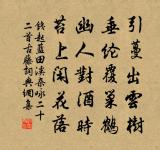 引蔓出雲樹
垂綸覆巢鶴
幽人對酒時
苔上閑花落
錢起藍田溪雜詠二十
二首古藤詞典網集